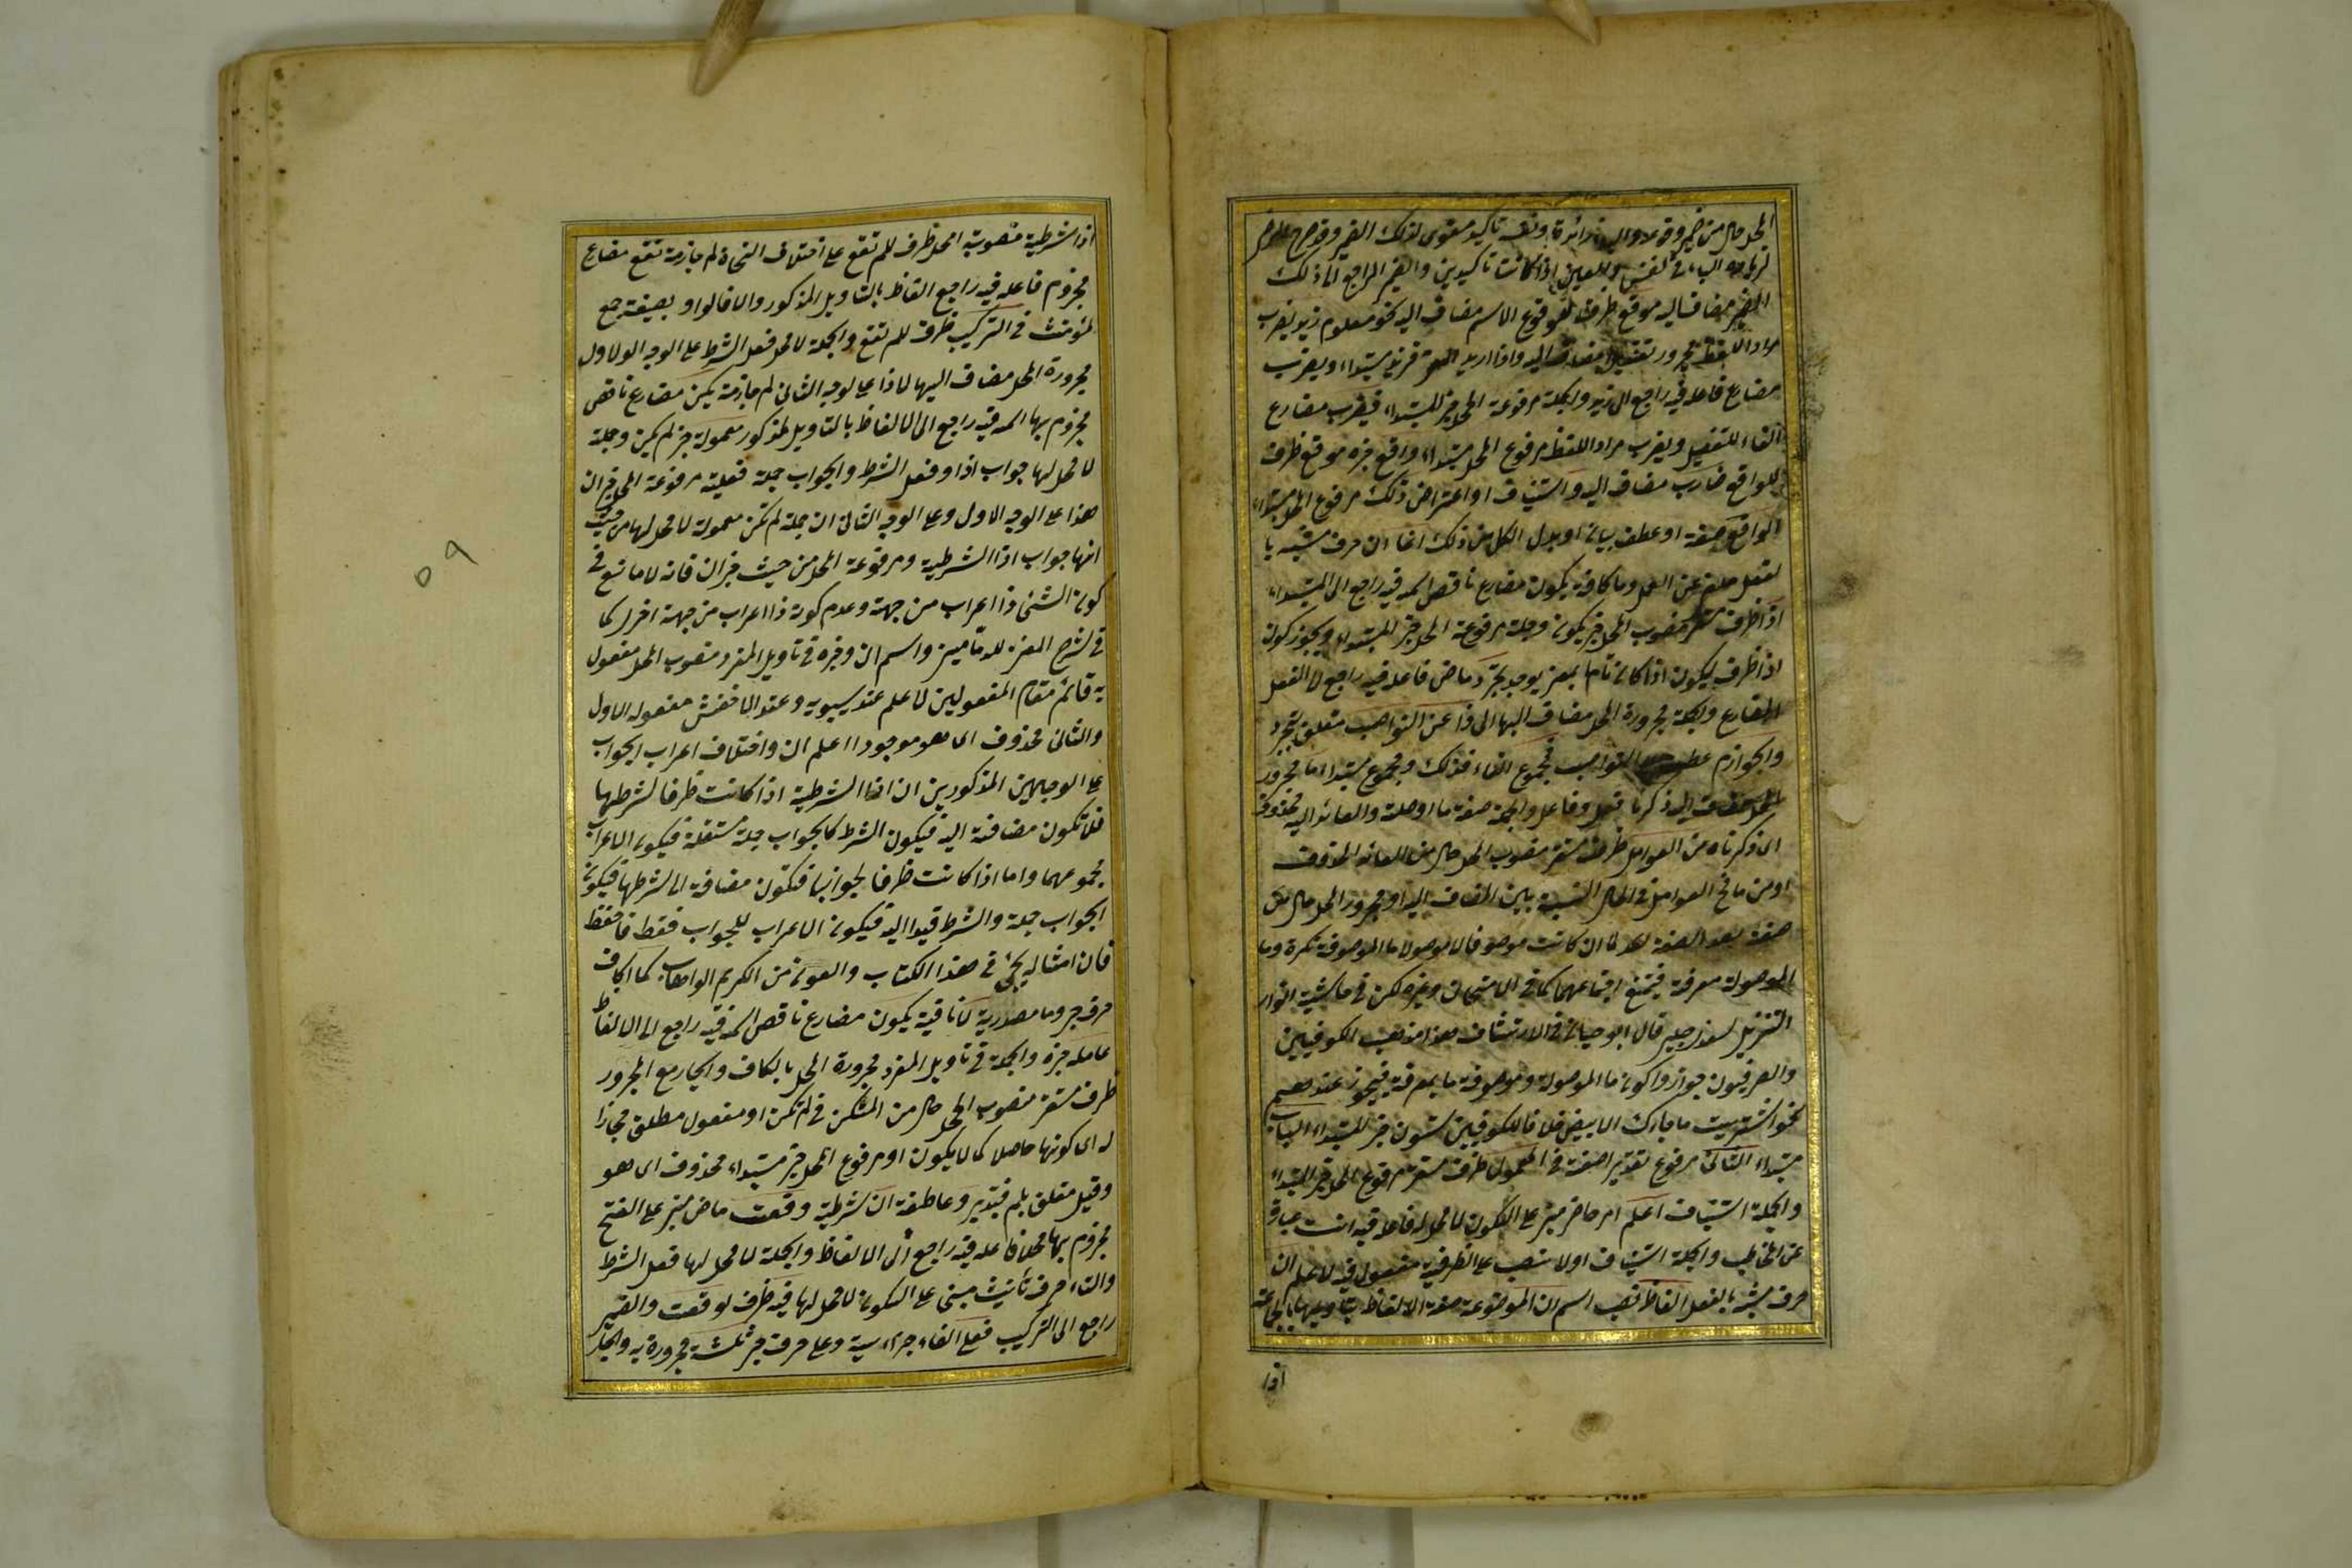 المحل حال من ضمير وقوعه والباء زائدة ونفسه تأكيد معنوى لذلك الضمير وقد صرح
لزيادة الباء فى النفس والعين اذا كانتا تاكيدين والضمير الراجع الى ذلك
الضمير مضاف اليه موقع ظرف لغو وقوع الاسم مضاف اليه نحو معلوم زيد يضرب
مراد اللفظ مجرور تقديرا مضاف اليه واذا اريد فزيد مبتداء ويضرب
مضارع فاعله فيه راجع الى زيد والجملة مرفوعة المحل خبر للمبتداء فيضرب مضارع
الفاء للتفصيل ويضرب مراد اللفظ مرفوع المحل مبتداء واقع خبره موقع ظرف
للواقع ضارب مضاف اليه واستيناف او اعتراض ذلك مرفوع المحل مبتداء
الواقع صفة او عطف بيان او بدل الكل من ذلك انما ان حرف مشبه با
لفعل ملغى عن العمل وما كافة يكون مضارع ناقص اسمه فيه راجع الى المبتداء
اذا ظرف مستقر منصوب المحل خبر يكون وجملة مرفوعة المحل خبر المبتداء ويجوز كون
اذا ظرف ليكون اذا كان تاما بمعنى يوجد تجرد ماض فاعله فيه راجع الى الفعل
المضارع والجملة مجرورة المحل مضاف اليها لاذا عن النواصب متعلق بتجرد
والجوازم عطف النواصب فمجموع الفاء فذلك ومجموع مبتداء ما مجرور
المحل مضاف اليه ذكرنا فعل وفاعل والجملة صفة ما او صلة والعائد اليه محذوف
اى ذكرناه من العوامل ظرف مستقر منصوب المحل حال من العائد المحذوف
او من ما فى العوامل فى الحال النسبة بين المضاف اليه او مجرور المحل حال من
صفة بعد الصفة لما ان كانت موصوفا لا موصولا ما الموصوفة نكرة وما
الموصولة معرفة فيمتنع اجتماعهما كما فى الامتحان وغيره لكن فى حاشية انوار
التنزيل قال ابو حيان فى الارتشاف هذا مذهب الكوفيين
والبصريون جوازوا كون ما الموصولة وموصوفة ما بمعرفة فيجوز عندهم
نحو اشتريت ما جاءك الابيض خلافا للكوفيين ستون خبر للمبتداء الباب
مبتداء الثانى مرفوع تقديرا صفة فى المعمول ظرف مستقر مرفوع المحل خبر المبتداء
والجملة استيناف اعلم امر حاضر مبنى على السكون لا محل له فاعله فيه انت عبارة
عن المخاطب والجملة استيناف اولا منصب على الظرفية مفعول فيه لاعلم ان
حرف مشبه بالفعل الفاظ نصب اسم ان الموضوعة صفة الالفاظ بتاويلها بالجماعة
اذا
اذا الشرطية منصوبة المحل ظرف للم تقع على اختلاف النحاة لم جازمة تقع مضارع
مجزوم فاعله فيه راجع الفاظ بالتاويل المذكور والا قالوا بصيغة جمع
المؤنث فى التركيب ظرف للم تقع والجملة لا محل فعل الشرط على الوجه الاول
مجرورة المحل مضاف اليها لاذا على الوجه الثانى لم جازمة يكن مضارع ناقص
مجزوم بها اسمه فيه راجع الى الالفاظ بالتاويل المذكور معمولة خبر لم يكن وجملة
لا محل لها جواب اذا وفعل الشرط والجواب جملة فعلية مرفوعة المحل خبر ان
هذا على الوجه الاول وعلى الوجه الثانى ان جملة لم تكن معمولة لا محل لها من حيث
انها جواب اذا الشرطية ومرفوعة المحل من حيث خبر ان فانه لا مانع فى
كون الشئ ذا اعراب من جهة وعدم كونه ذا اعراب من جهة اخرى كما
فى شرح المغنى للدمامينى واسم ان وخبره فى تاويل المفرد منصوب المحل مفعول
به قائم مقام المفعولين لاعلم عند سيبويه وعند الاخفش مفعوله الاول
والثانى محذوف اى هو موجودا اعلم ان واختلاف اعراب الجواب
على الوجهين المذكورين ان اذا الشرطية اذا كانت ظرفا لشرطها
فلا تكون مضافة اليه فيكون الشرط كالجواب جملة مستقلة فيكون الاعراب
لمجموعهما واما اذا كانت ظرفا لجوابها فتكون مضافة الى شرطها فيكون
الجواب جملة والشرط قيدا اليه فيكون الاعراب للجواب فقط فاحفظ
فان امثاله يجئ فى هذا الكتاب والعون من الكريم الوهاب كما الكاف
حرف جر وما مصدرية لا نافية يكون مضارع ناقص اسمه فيه راجع الى الالفاظ
عامله خبره والجملة فى تاويل المفرد مجرورة المحل بالكاف والجار مع المجرور
ظرف مستقر منصوب المحل حال من المستكن فى لم تكن او مفعول مطلق مجازا
له اى كونها حاصلا كما لا يكون او مرفوع المحل خبر مبتداء محذوف اى هو
وقيل متعلق بلم فتدبر وعاطفة ان شرطية وقعت ماض مبنى على الفتح
مجزوم بها محلا فاعله فيه راجع الى الالفاظ والجملة لا محل لها فعل الشرط
والتاء حرف تأنيث مبنى على السكون لا محل لها فيه ظرف لوقعت والضمير
راجع الى التركيب فعلى الفاء جزاءية وعلى حرف جر ثلثة مجرورة به والجار
٥٩